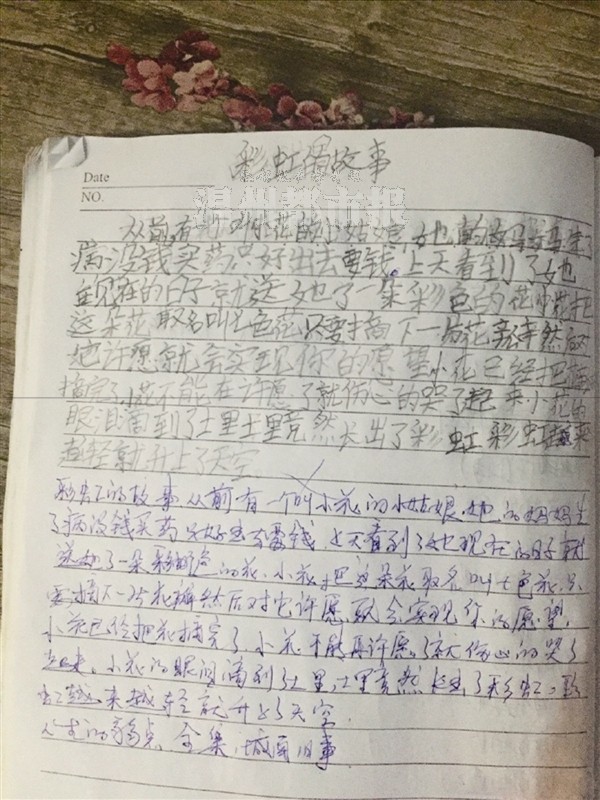 彩虹的故事
Date
NO.
温州都市报
从前有一个叫小花的小姑娘她的妈妈生了
病没钱买药只好出去要钱，上天看到了她
现在的日子就送她了一朵彩色的花小花把
这朵花取名叫七色花只要摘下一片花瓣然后对
它许愿就会实现你的愿望小花已经把花
摘完了小花不能在许愿了就伤心的哭了起来小花的
眼泪滴到了土里土里竟然长出了彩虹彩虹越来
越轻就升上了天空
彩虹的故事 从前有一个叫小花的小姑娘，她的妈妈生
了病没钱买药 只好出去要钱，上天看到了她现在的日子就
送她了一朵彩色的花，小花把这朵花取名叫七色花，只
要摘下一片花瓣然后对它许愿就会实现你的愿望，
小花已经把花摘完了，小花不能再许愿了就伤心的哭了
起来，小花的眼泪滴到了土里，土里竟然长出了彩虹，彩
虹越来越轻就升上了天空